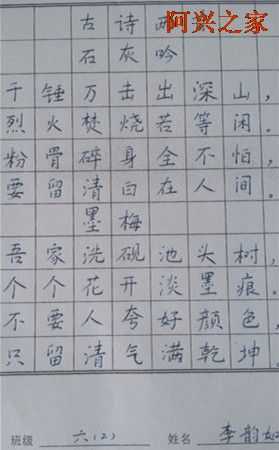 阿兴之家
古诗两
石灰吟
千锤万击出深山，
烈火焚烧若等闲。
粉骨碎身全不怕，
要留清白在人间。
墨梅
吾家洗砚池头树，
个个花开淡墨痕。
不要人夸好颜色，
只留清气满乾坤。
班级 六(2) 姓名 李韵如